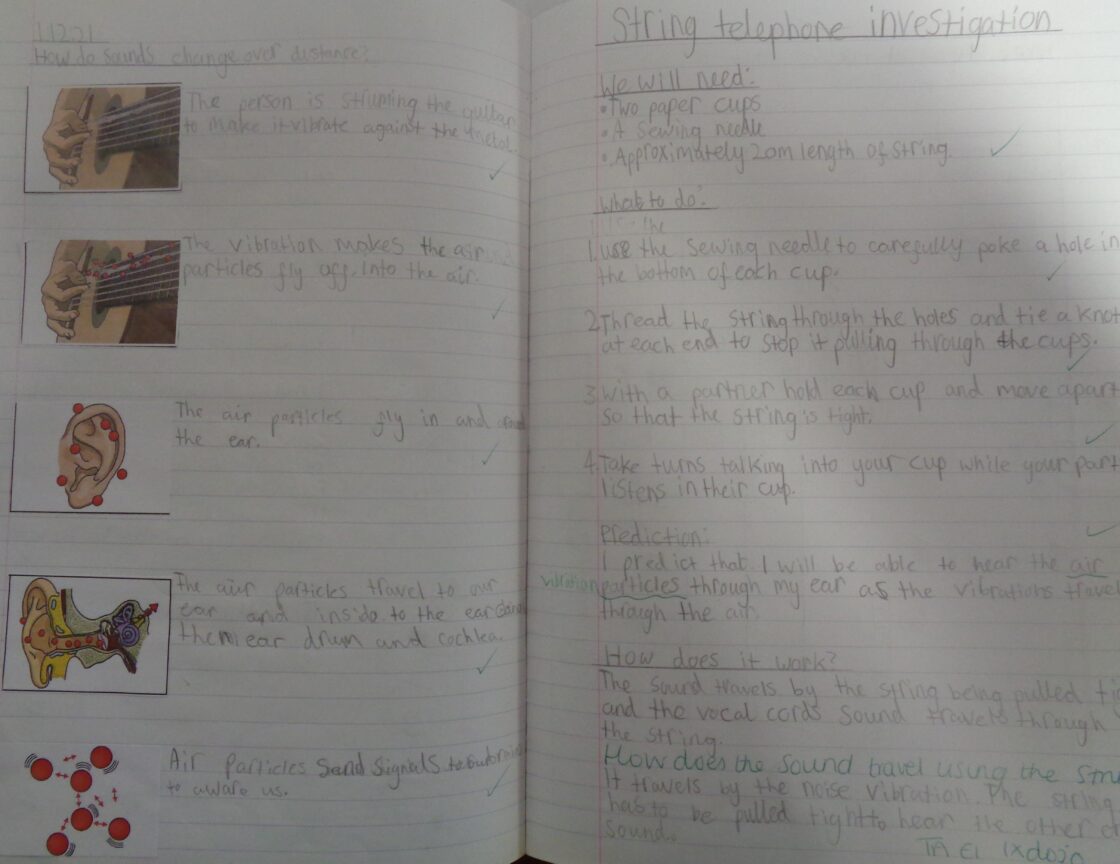 1.12.21
How do sounds change over distance?
The person is struming the guitar
to make it vibrate against the
The vibration makes the air
particles fly off into the air.
The air particles fly in and
the ear.
The aiir particles travel to our
ear and inside to the ear
them ear drum and cochlea.
Air particles Send signals to
to aware us.
String telephone investigation
We will need:
• Two paper cups
• A sewing needle
• Approximately 20m length of string.
What to do:
the
1. use the sewing needle to carefully poke a hole in
the bottom of each cup.
2. Thread the string through the holes and tie a knot
at each end to stop it pulling through the cups.
3 With a partner hold each cup and move apart
so that the string is tight.
4. Take turns talking into your cup while your part
listens in their cup.
Prediction:
I predict that I will be able to hear the air
vibration particles through my ear as the vibrations trave
through the air.
How does it work?
The sound travels by the string being pulled ti
and the vocal cords sound travels through
the string.
How does the sound travel using the
It travels by the noise vibration. The string
has to be pulled tight to hear the other
sound.